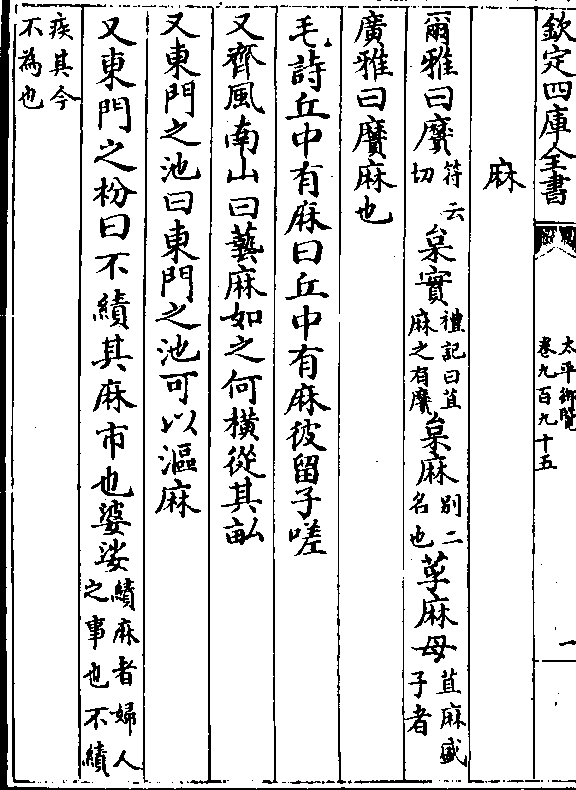 欽定四庫全書 太平御覽 卷九百九十五 一
麻
爾雅曰黂符云切枲實禮記曰苴麻之有黂枲麻別二名也茡麻母苴麻盛子者
廣雅曰黂麻也
毛詩丘中有麻曰丘中有麻彼留子嗟
又齊風南山曰藝麻如之何橫從其畝
又東門之池曰東門之池可以漚麻
又東門之枌曰不績其麻市也婆娑績麻者婦人之事也不績
疾其今不為也